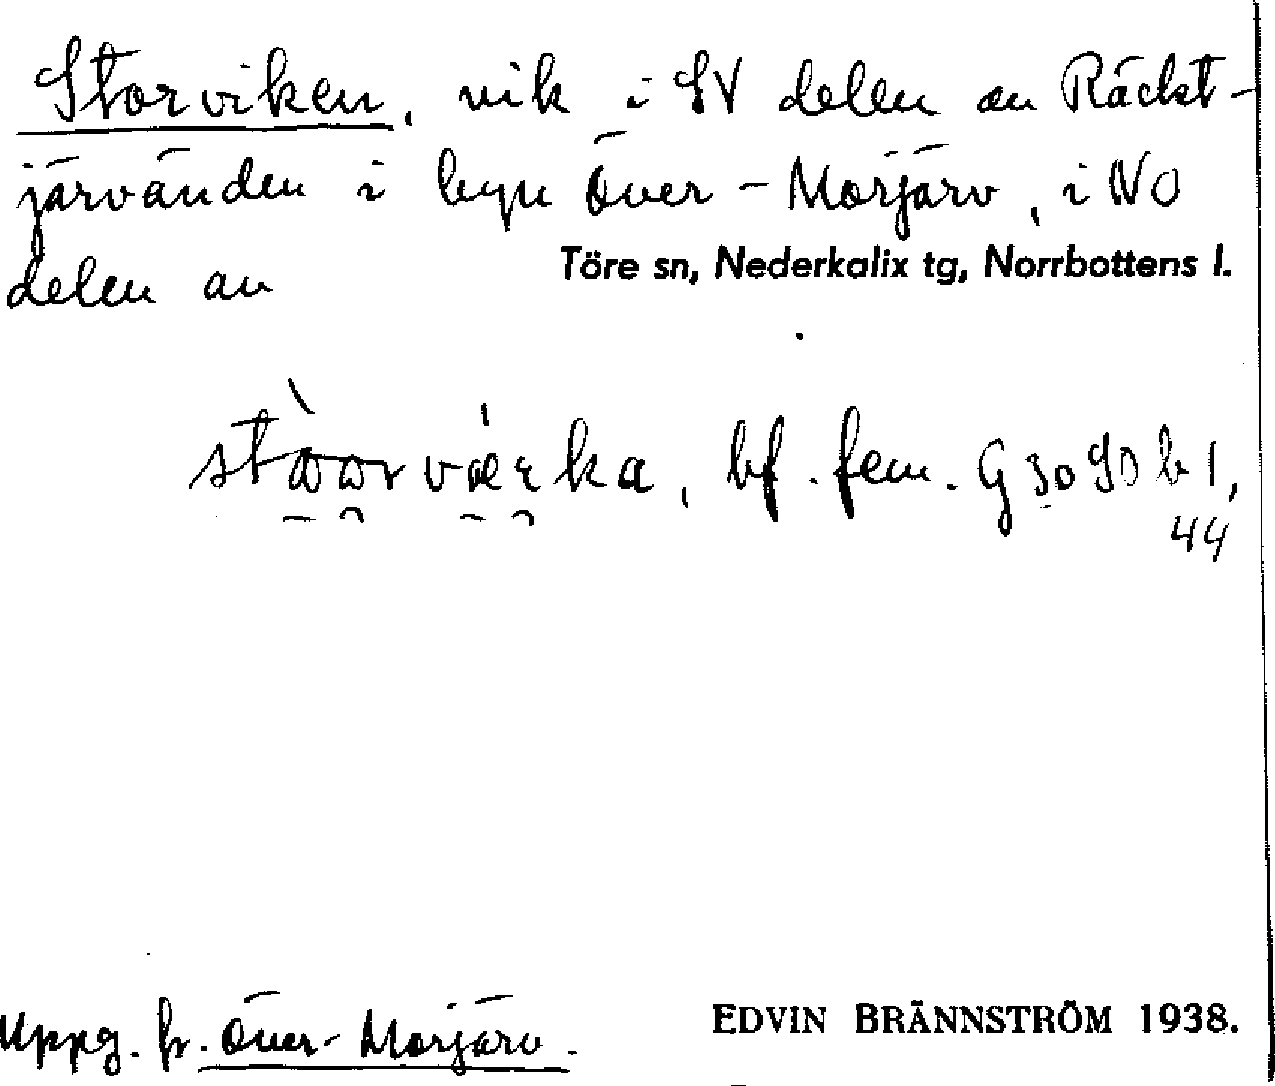 Storviken, vik i SV delen av Räckt-
järvänden i byn Över-Morjärv, i NO
delen av Töre sn, Nederkalix tg, Norrbottens l.
bf. fem. G 30 90 b 1,
44
Uppg. fr. Över-Morjärv.
EDVIN BRÄNNSTRÖM 1938.